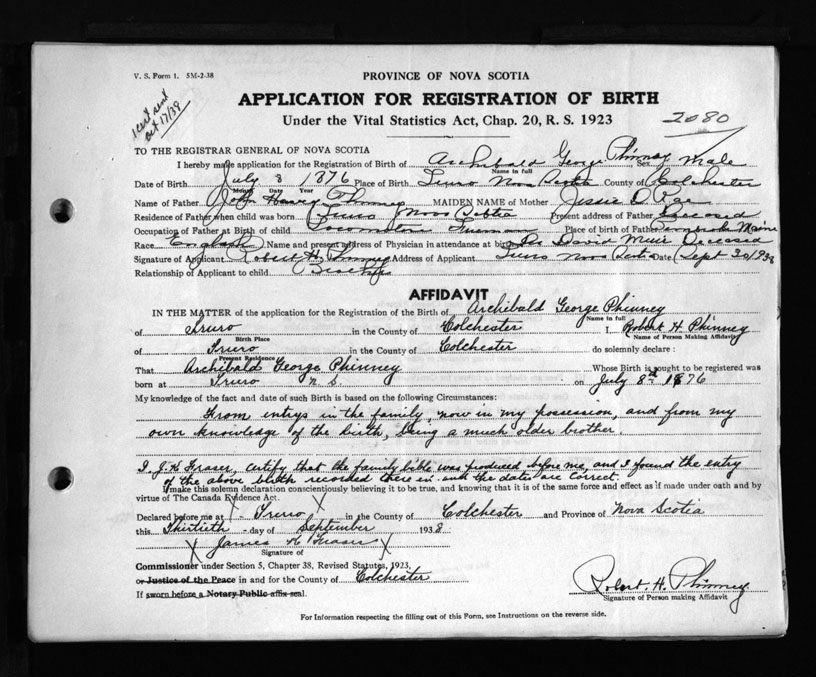 V. S. Form 1. 5M-2-38
1 cert sent
Oct 17/39
PROVINCE OF NOVA SCOTIA
APPLICATION FOR REGISTRATION OF BIRTH
2080
Under the Vital Statistics Act, Chap. 20, R. S. 1923
TO THE REGISTRAR GENERAL OF NOVA SCOTIA
I hereby make application for the Registration of Birth of Archibald George Phinney Sex Male
Name in full
Date of Birth July 8 1876 Place of Birth Truro Nova Scotia County of Colchester
Month Date Year
Name of Father Harvey Phinney MAIDEN NAME of Mother Jessie D.
Residence of Father when child was born Truro Nova Scotia Present address of Father Deceased
Occupation of Father at Birth of child Locomotive Fireman Place of birth of Father Pembroke Maine
Race English Name and present address of Physician in attendance at birth David Muir Deceased
Signature of Applicant Robert H. Phinney Address of Applicant Truro Nova Scotia Date Sept 30/1938
Relationship of Applicant to child Brother
AFFIDAVIT
IN THE MATTER of the application for the Registration of the Birth of Archibald George Phinney
Name in full
of Truro in the County of Colchester I, Robert H Phinney
Birth Place Name of Person Making Affidavit
of Truro in the County of Colchester do solemnly declare :
Present Residence
That Archibald George Phinney Whose Birth is sought to be registered was
born at Truro N. S. on July 8th 1876
My knowledge of the fact and date of such Birth is based on the following Circumstances:
From entrys in the family, now in my possession, and from my
own knowledge of the birth, being a much older brother.
I, J. K Fraser, certify that the family bible was produced before me, and I found the entry
of the above birth recorded there in and the dates are correct.
I make this solemn declaration conscientiously believing it to be true, and knowing that it is of the same force and effect as if made under oath and by
virtue of The Canada Evidence Act.
Declared before me at Truro in the County of Colchester and Province of Nova Scotia
this Thirtieth day of September 1938
James K Fraser
Signature of
Commissioner under Section 5, Chapter 38, Revised Statutes, 1923,
or Justice of the Peace in and for the County of Colchester
If sworn before a Notary Public affix seal.
Robert H. Phinney
Signature of Person making Affidavit
For Information respecting the filling out of this Form, see Instructions on the reverse side.